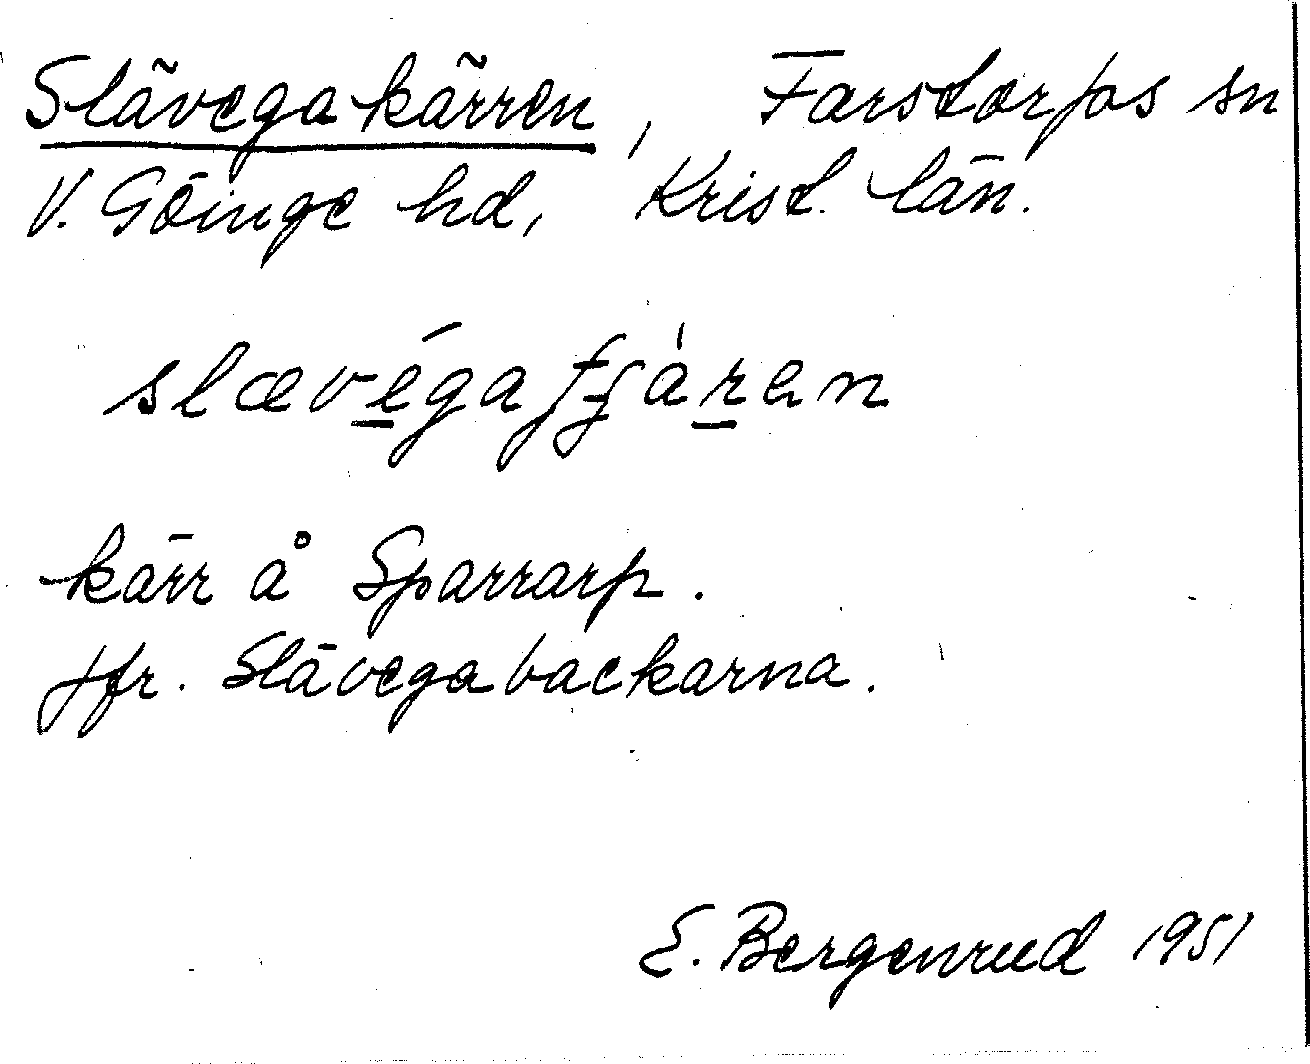 Slävegakärren, Farstorps sn
V. Göinge hd, Krist. län.
kärr å Sparrarp.
Jfr. Slävegabackarna.
E. Bergenrud 1951